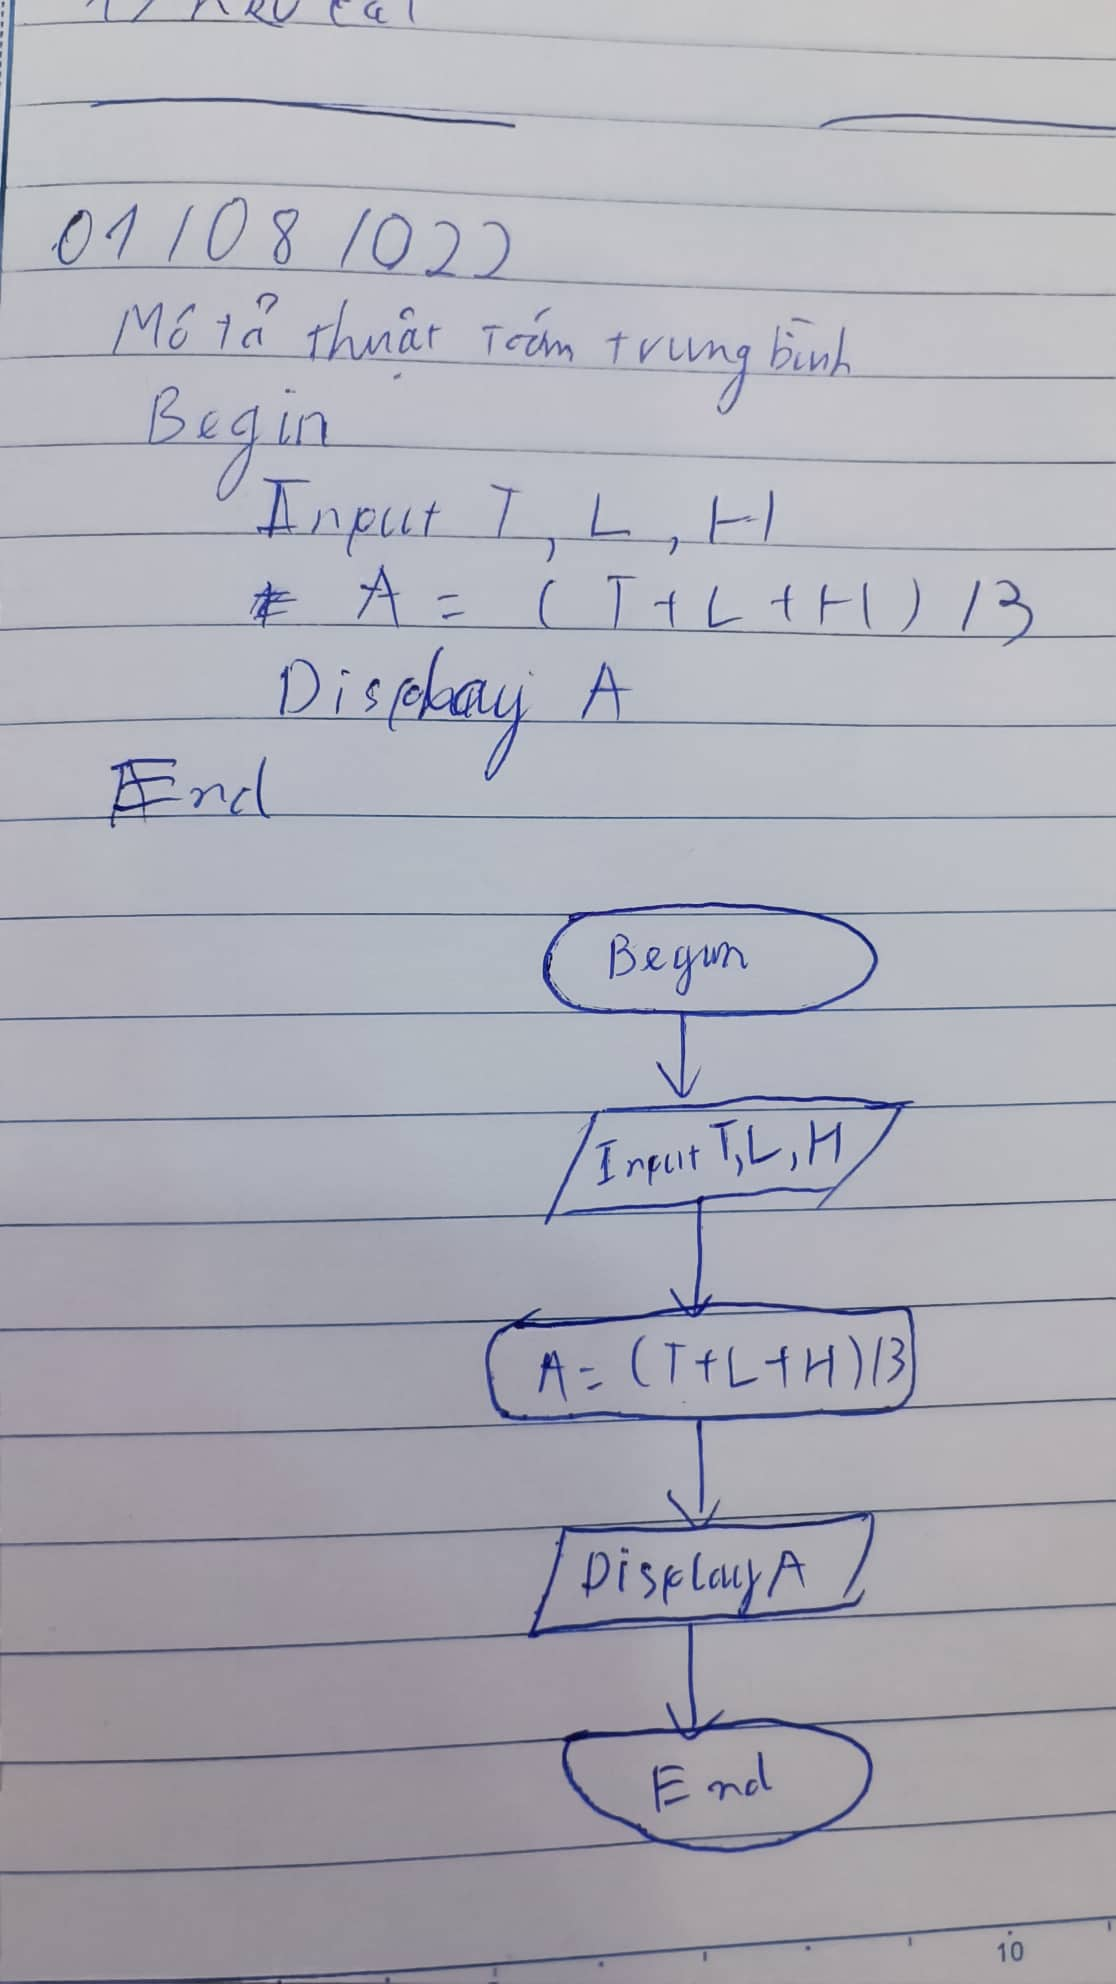 01/08/022
Mô tả thuật toán trung bình
Begin
Input T, L, H
A = (T+L+H)/3
Display A
End
Begin
Input T, L, H
A = (T+L+H)/3
Display A
End
10